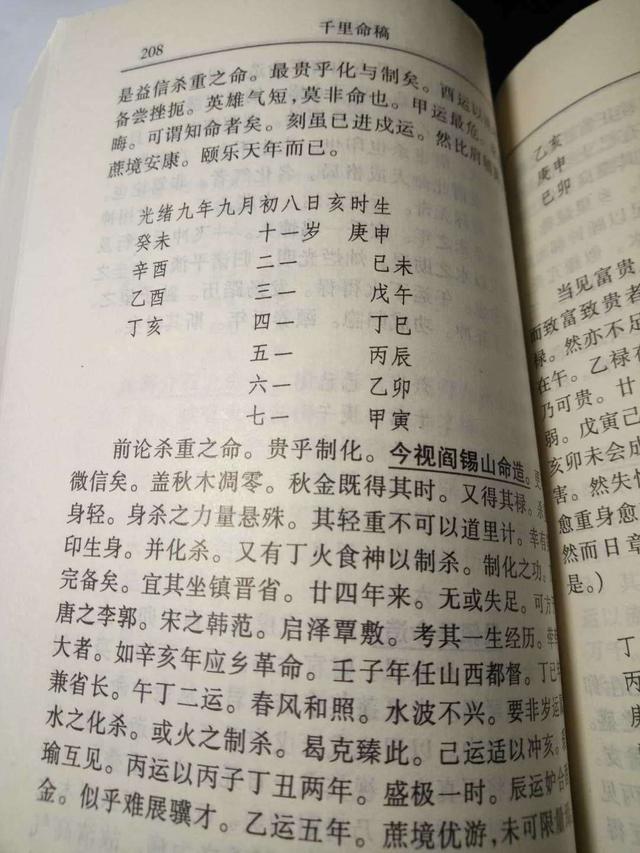 千里命稿
208
是益信杀重之命。最贵乎化与制矣。酉运以
备尝挫扼。英雄气短，莫非命也。甲运最危。
晦。可谓知命者矣。刻虽已进戌运。然比肩
蔗境安康。颐乐天年而已。
光绪九年九月初八日亥时生
癸未 十一岁 庚申
辛酉 二一 己未
乙酉 三一 戊午
丁亥 四一 丁巳
五一 丙辰
六一 乙卯
七一 甲寅
前论杀重之命。贵乎制化。今视阎锡山命造。
微信矣。盖秋木凋零。秋金既得其时。又得其禄。
身轻。身杀之力量悬殊。其轻重不可以道里计。幸有
印生身。并化杀。又有丁火食神以制杀。制化之功。
完备矣。宜其坐镇晋省。廿四年来。无或失足。可方
唐之李郭。宋之韩范。启泽覃敷。考其一生经历。
大者。如辛亥年应乡革命。壬子年任山西都督。丁巳
兼省长。午丁二运。春风和照。水波不兴。要非岁运
水之化杀。或火之制杀。曷克臻此。己运适以冲亥。
瑜互见。丙运以丙子丁丑两年。盛极一时。辰运妒合
金。似乎难展骥才。乙运五年。蔗境优游，未可限量
乙亥
庚申
己卯
当见富贵
而致富致贵者
禄。然亦不足
在午。乙禄在
乃可贵。廿
弱。戊寅己
亥卯未会成
害。然失
愈重身愈
然而日章
是。）
丁
丙
庚